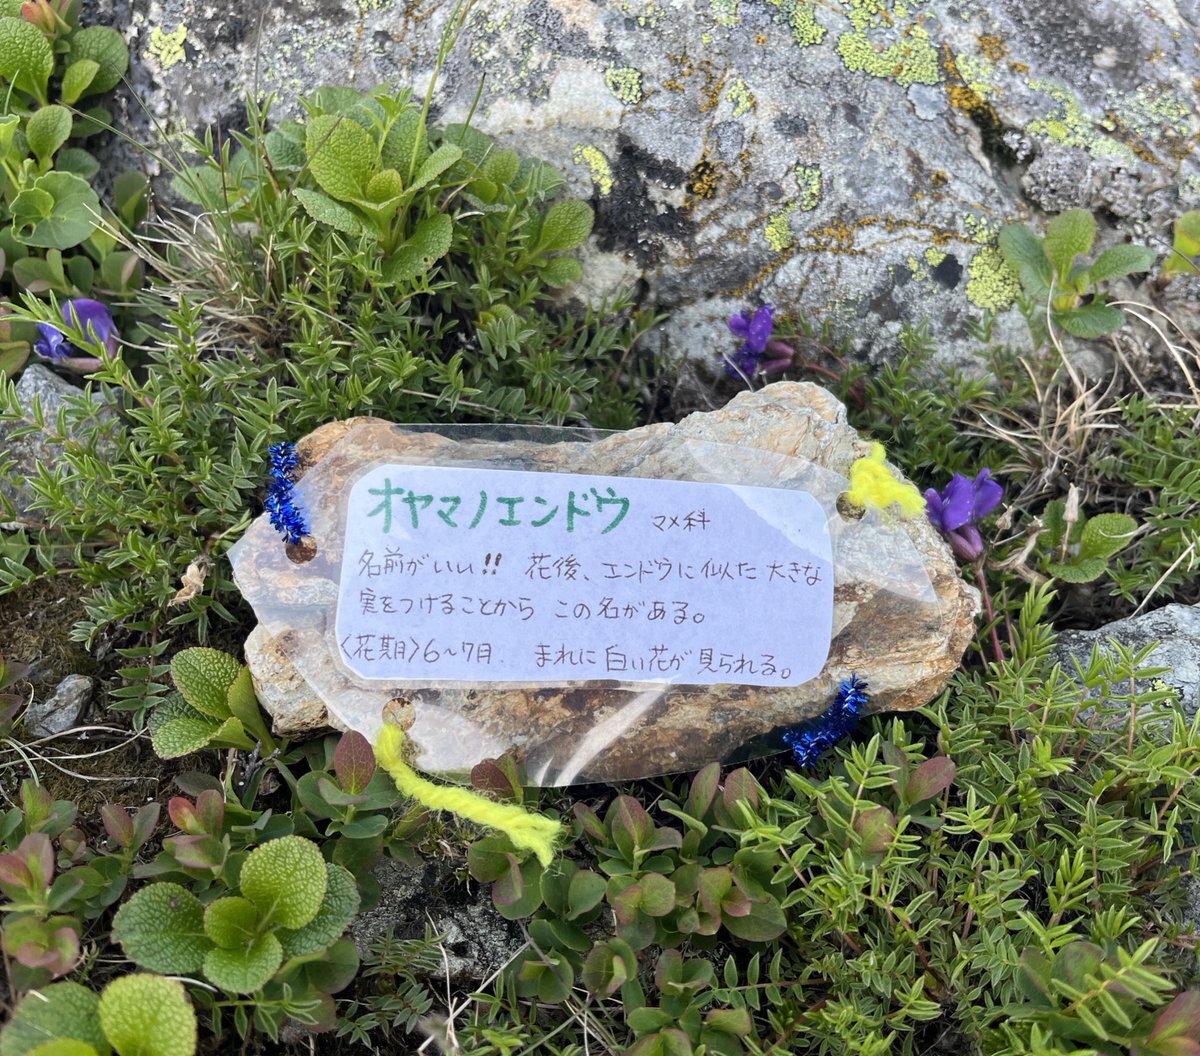 オヤマノエンドウ マメ科
名前がいい!! 花後、エンドウに似た大きな
実をつけることから この名がある。
〈花期〉6~7月. まれに白い花が見られる。